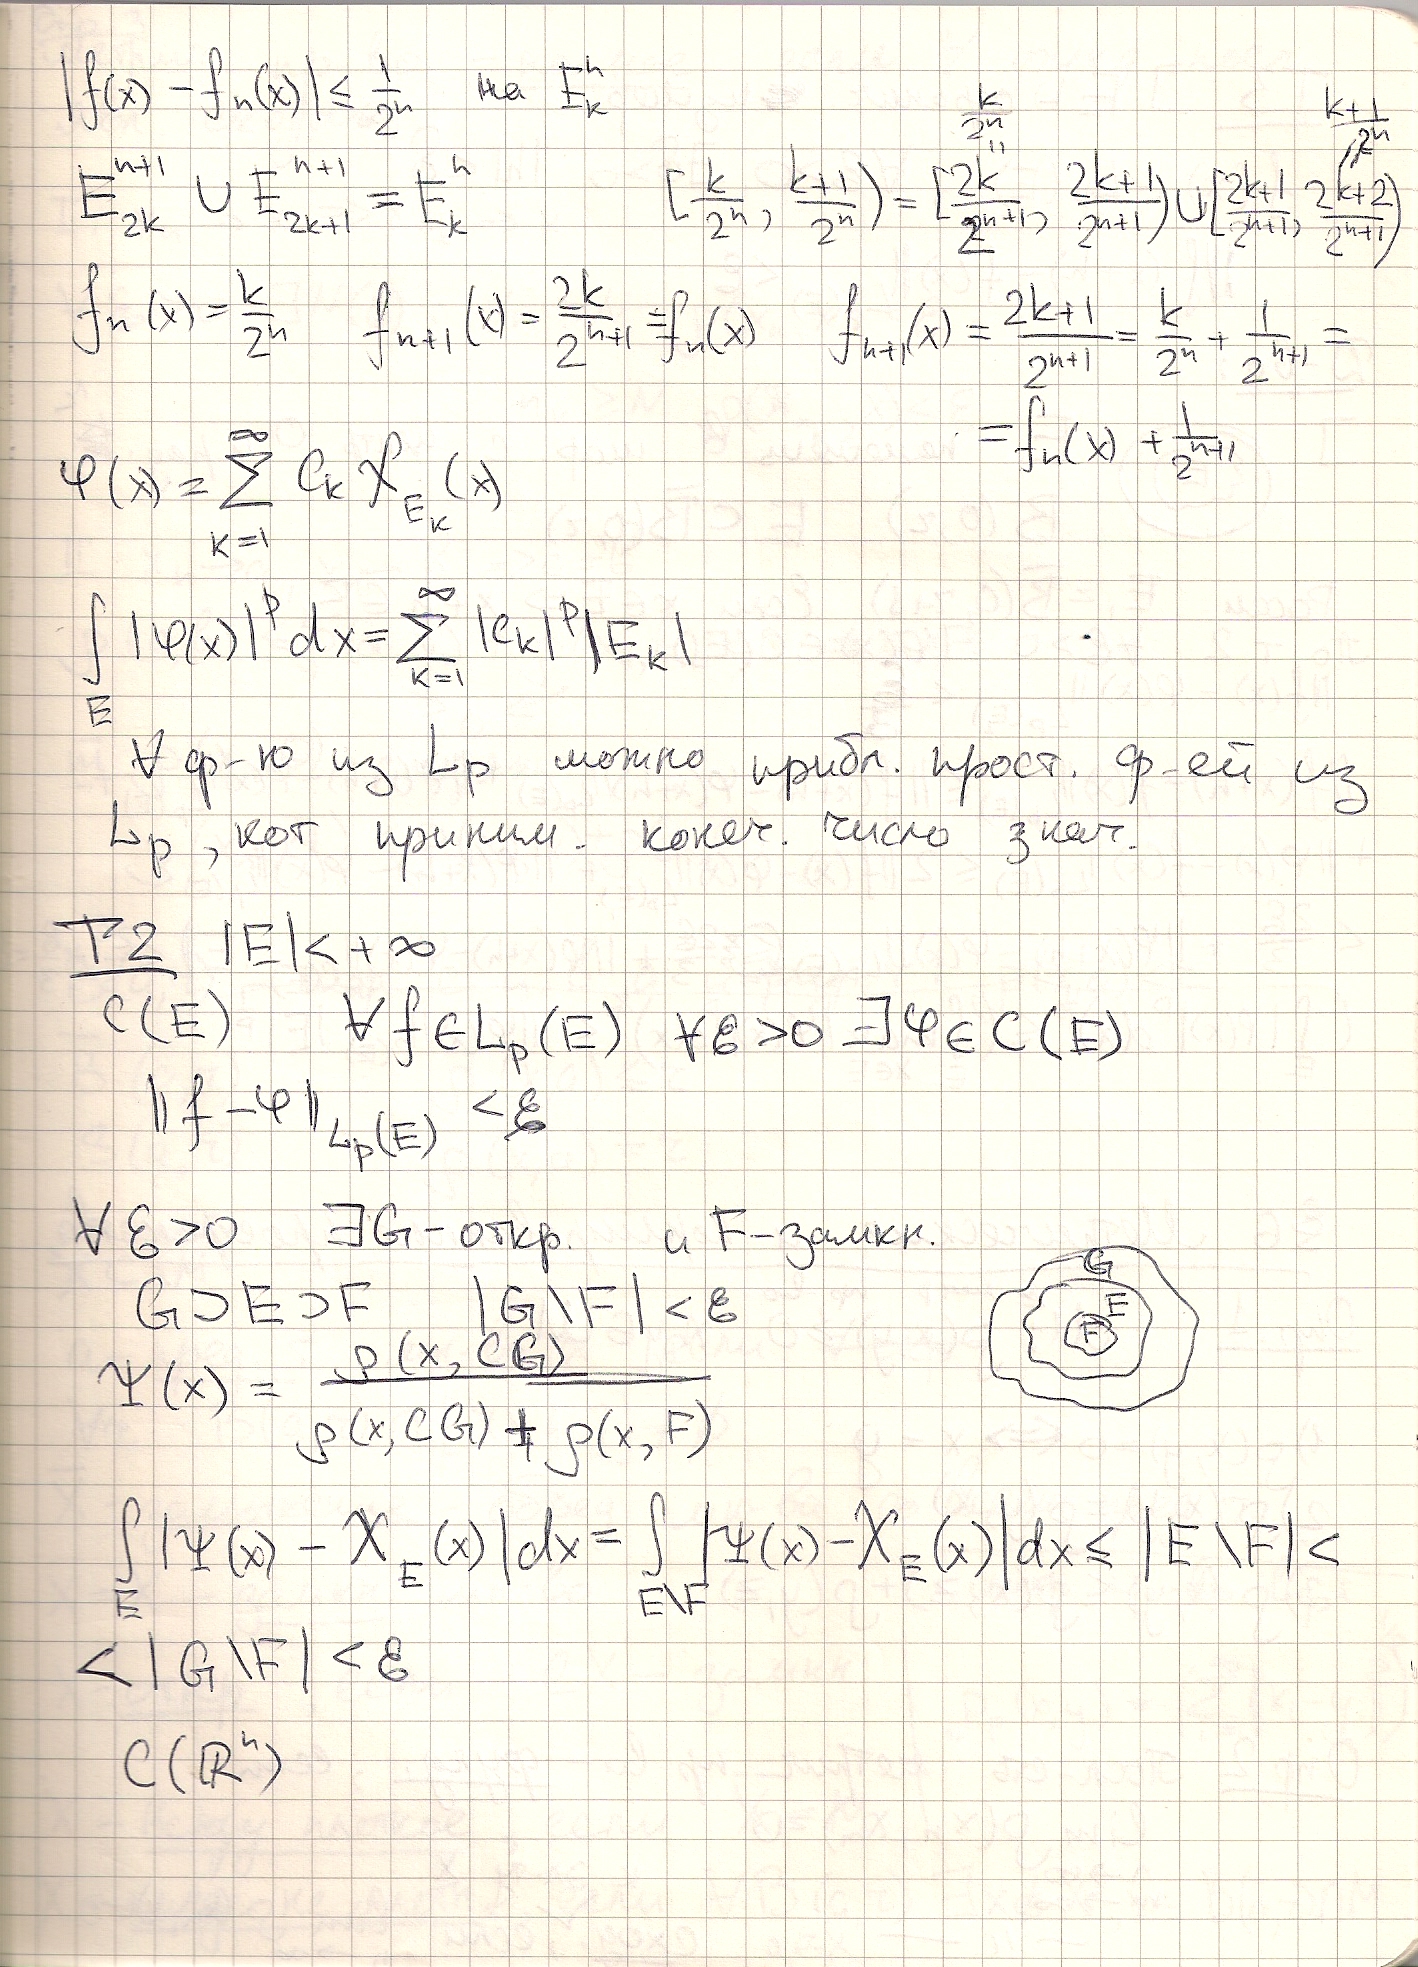 |f(x) - fₙ(x)| ≤ 1/2ⁿ на Eₖⁿ
k/2ⁿ (k+1)/2ⁿ
E₂ₖⁿ⁺¹ ∪ E₂ₖ₊₁ⁿ⁺¹ = Eₖⁿ [k/2ⁿ, (k+1)/2ⁿ) = [2k/2ⁿ⁺¹, (2k+1)/2ⁿ⁺¹) ∪ [(2k+1)/2ⁿ⁺¹, (2k+2)/2ⁿ⁺¹)
fₙ(x) = k/2ⁿ fₙ₊₁(x) = 2k/2ⁿ⁺¹ = fₙ(x) fₙ₊₁(x) = (2k+1)/2ⁿ⁺¹ = k/2ⁿ + 1/2ⁿ⁺¹ =
= fₙ(x) + 1/2ⁿ⁺¹
φ(x) = ∑_{k=1}^{∞} Cₖ χ_{Eₖ}(x)
∫_E |φ(x)|^p dx = ∑_{k=1}^{∞} |Cₖ|^p |Eₖ|
∀ ф-ю из Lp можно прибл. прост. ф-ей из
Lp, кот приним. конеч. число знач.
T2 |E| < +∞
C(E) ∀f ∈ Lp(E) ∀ε > 0 ∃φ ∈ C(E)
‖f - φ‖_{Lp(E)} < ε
∀ε > 0 ∃G - откр. и F - замкн.
G ⊃ E ⊃ F |G \ F| < ε
G E F
Ψ(x) = ρ(x, CG) / (ρ(x, CG) + ρ(x, F))
∫_E |Ψ(x) - χ_E(x)| dx = ∫_{E\F} |Ψ(x) - χ_E(x)| dx ≤ |E \ F| <
< |G \ F| < ε
C(ℝⁿ)